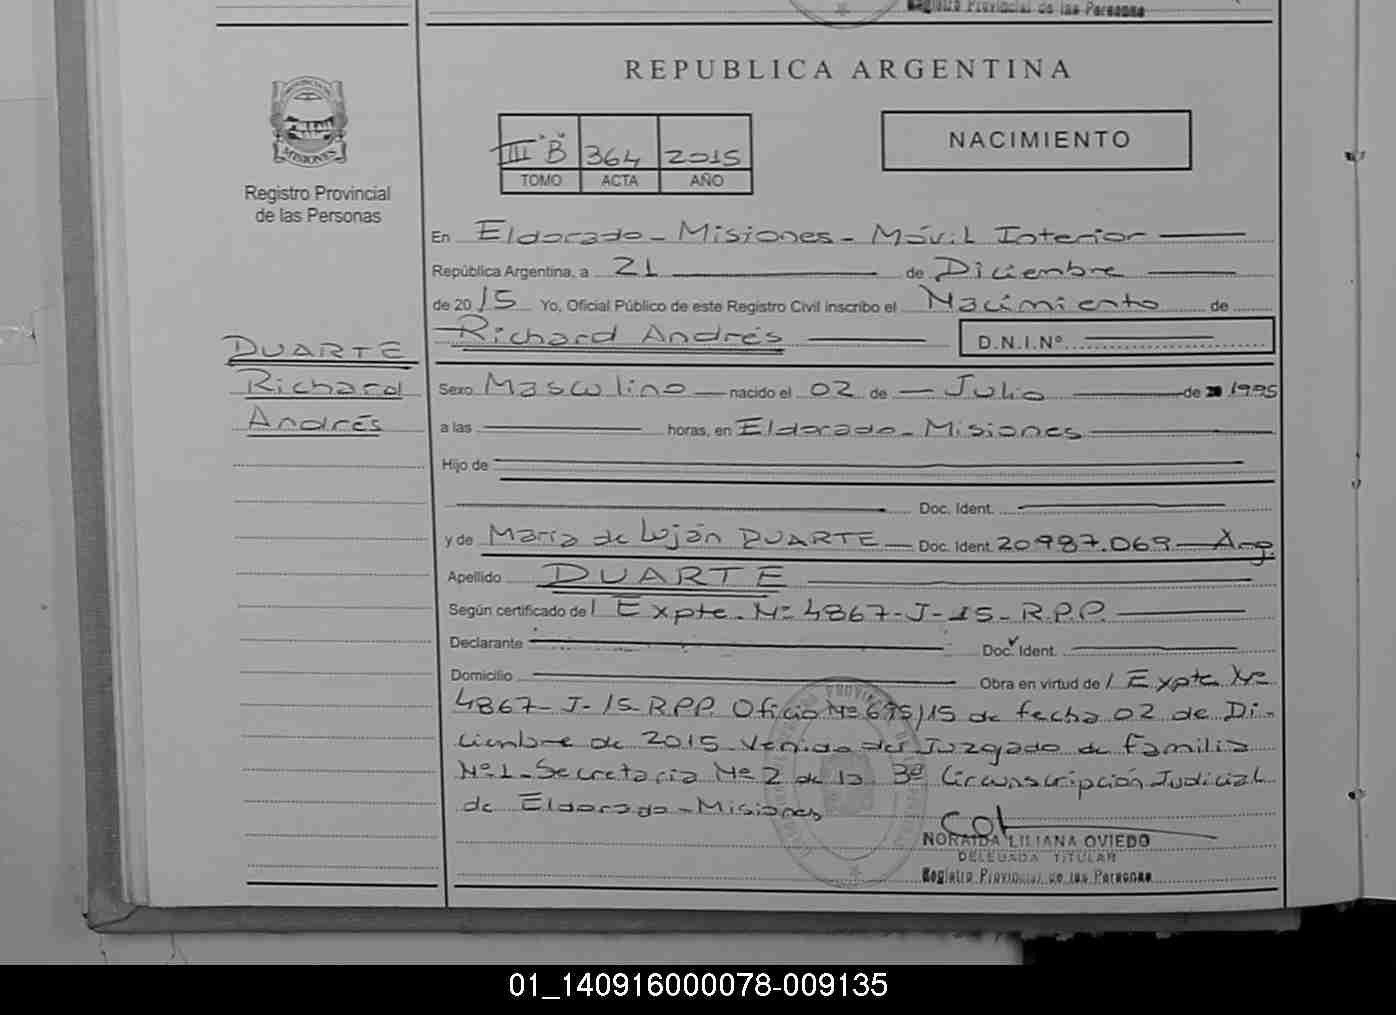 Registro Provincial de las Personas
REPUBLICA ARGENTINA
MISIONES
Registro Provincial
de las Personas
III "B" 364 2015
TOMO ACTA AÑO
NACIMIENTO
En Eldorado - Misiones - Móvil Interior
República Argentina, a 21 de Diciembre
de 2015 Yo, Oficial Público de este Registro Civil inscribo el Nacimiento de
Richard Andrés D.N.I.Nº
DUARTE
Richard
Andrés
Sexo Masculino nacido el 02 de Julio de 1995
a las horas, en Eldorado - Misiones
Hijo de
Doc. Ident.
y de María de Luján DUARTE Doc. Ident. 20987.069 - Arg
Apellido DUARTE
Según certificado de Expte. Nº 4867-J-15-R.P.P.
Declarante Doc. Ident.
Domicilio Obra en virtud de Expte Nº
4867-J-15-R.P.P. Oficio Nº 695/15 de fecha 02 de Di-
ciembre de 2015 Venido del Juzgado de Familia
Nº1-Secretaria Nº2 de la 3ª Circunscripción Judicial
de Eldorado - Misiones
NORAIDA LILIANA OVIEDO
DELEGADA TITULAR
Registro Provincial de las Personas
01_140916000078-009135